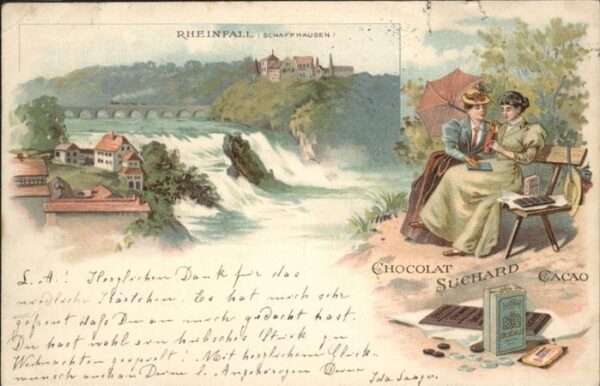 RHEINFALL (SCHAFFHAUSEN)
CHOCOLAT
SUCHARD
CACAO
L. A.! Herzlichen Dank für das
niedliche Kärtchen. Es hat mich sehr
gefreut daß Du an mich gedacht hast.
Du hast wohl ein hübsches Stück zu
Weihnachten gespielt! Mit herzlichem Glück-
wunsch auch an Deine l. Angehörigen Deine
Ida